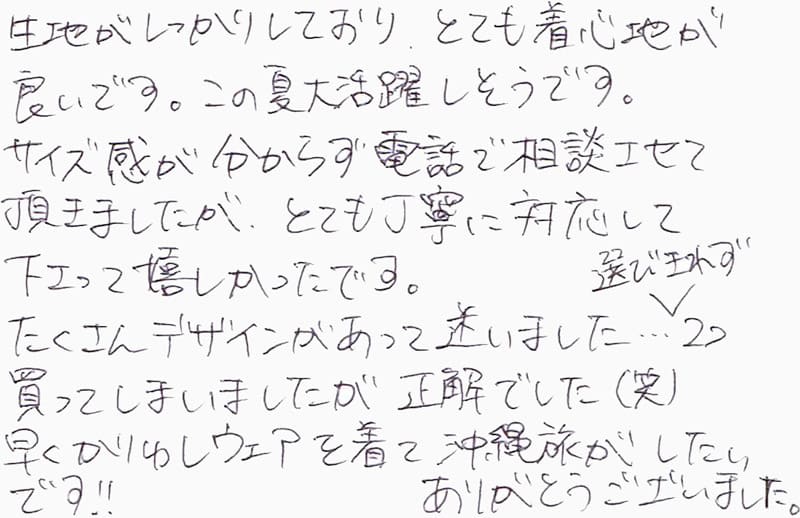 生地がしっかりしており、とても着心地が
良いです。この夏大活躍しそうです。
サイズ感が分からず電話で相談させて
頂きましたが、とても丁寧に対応して
下さって嬉しかったです。
たくさんデザインがあって迷いました…選びきれず2つ
買ってしまいましたが正解でした(笑)
早くかりゆしウェアを着て沖縄旅がしたい
です!!
ありがとうございました。